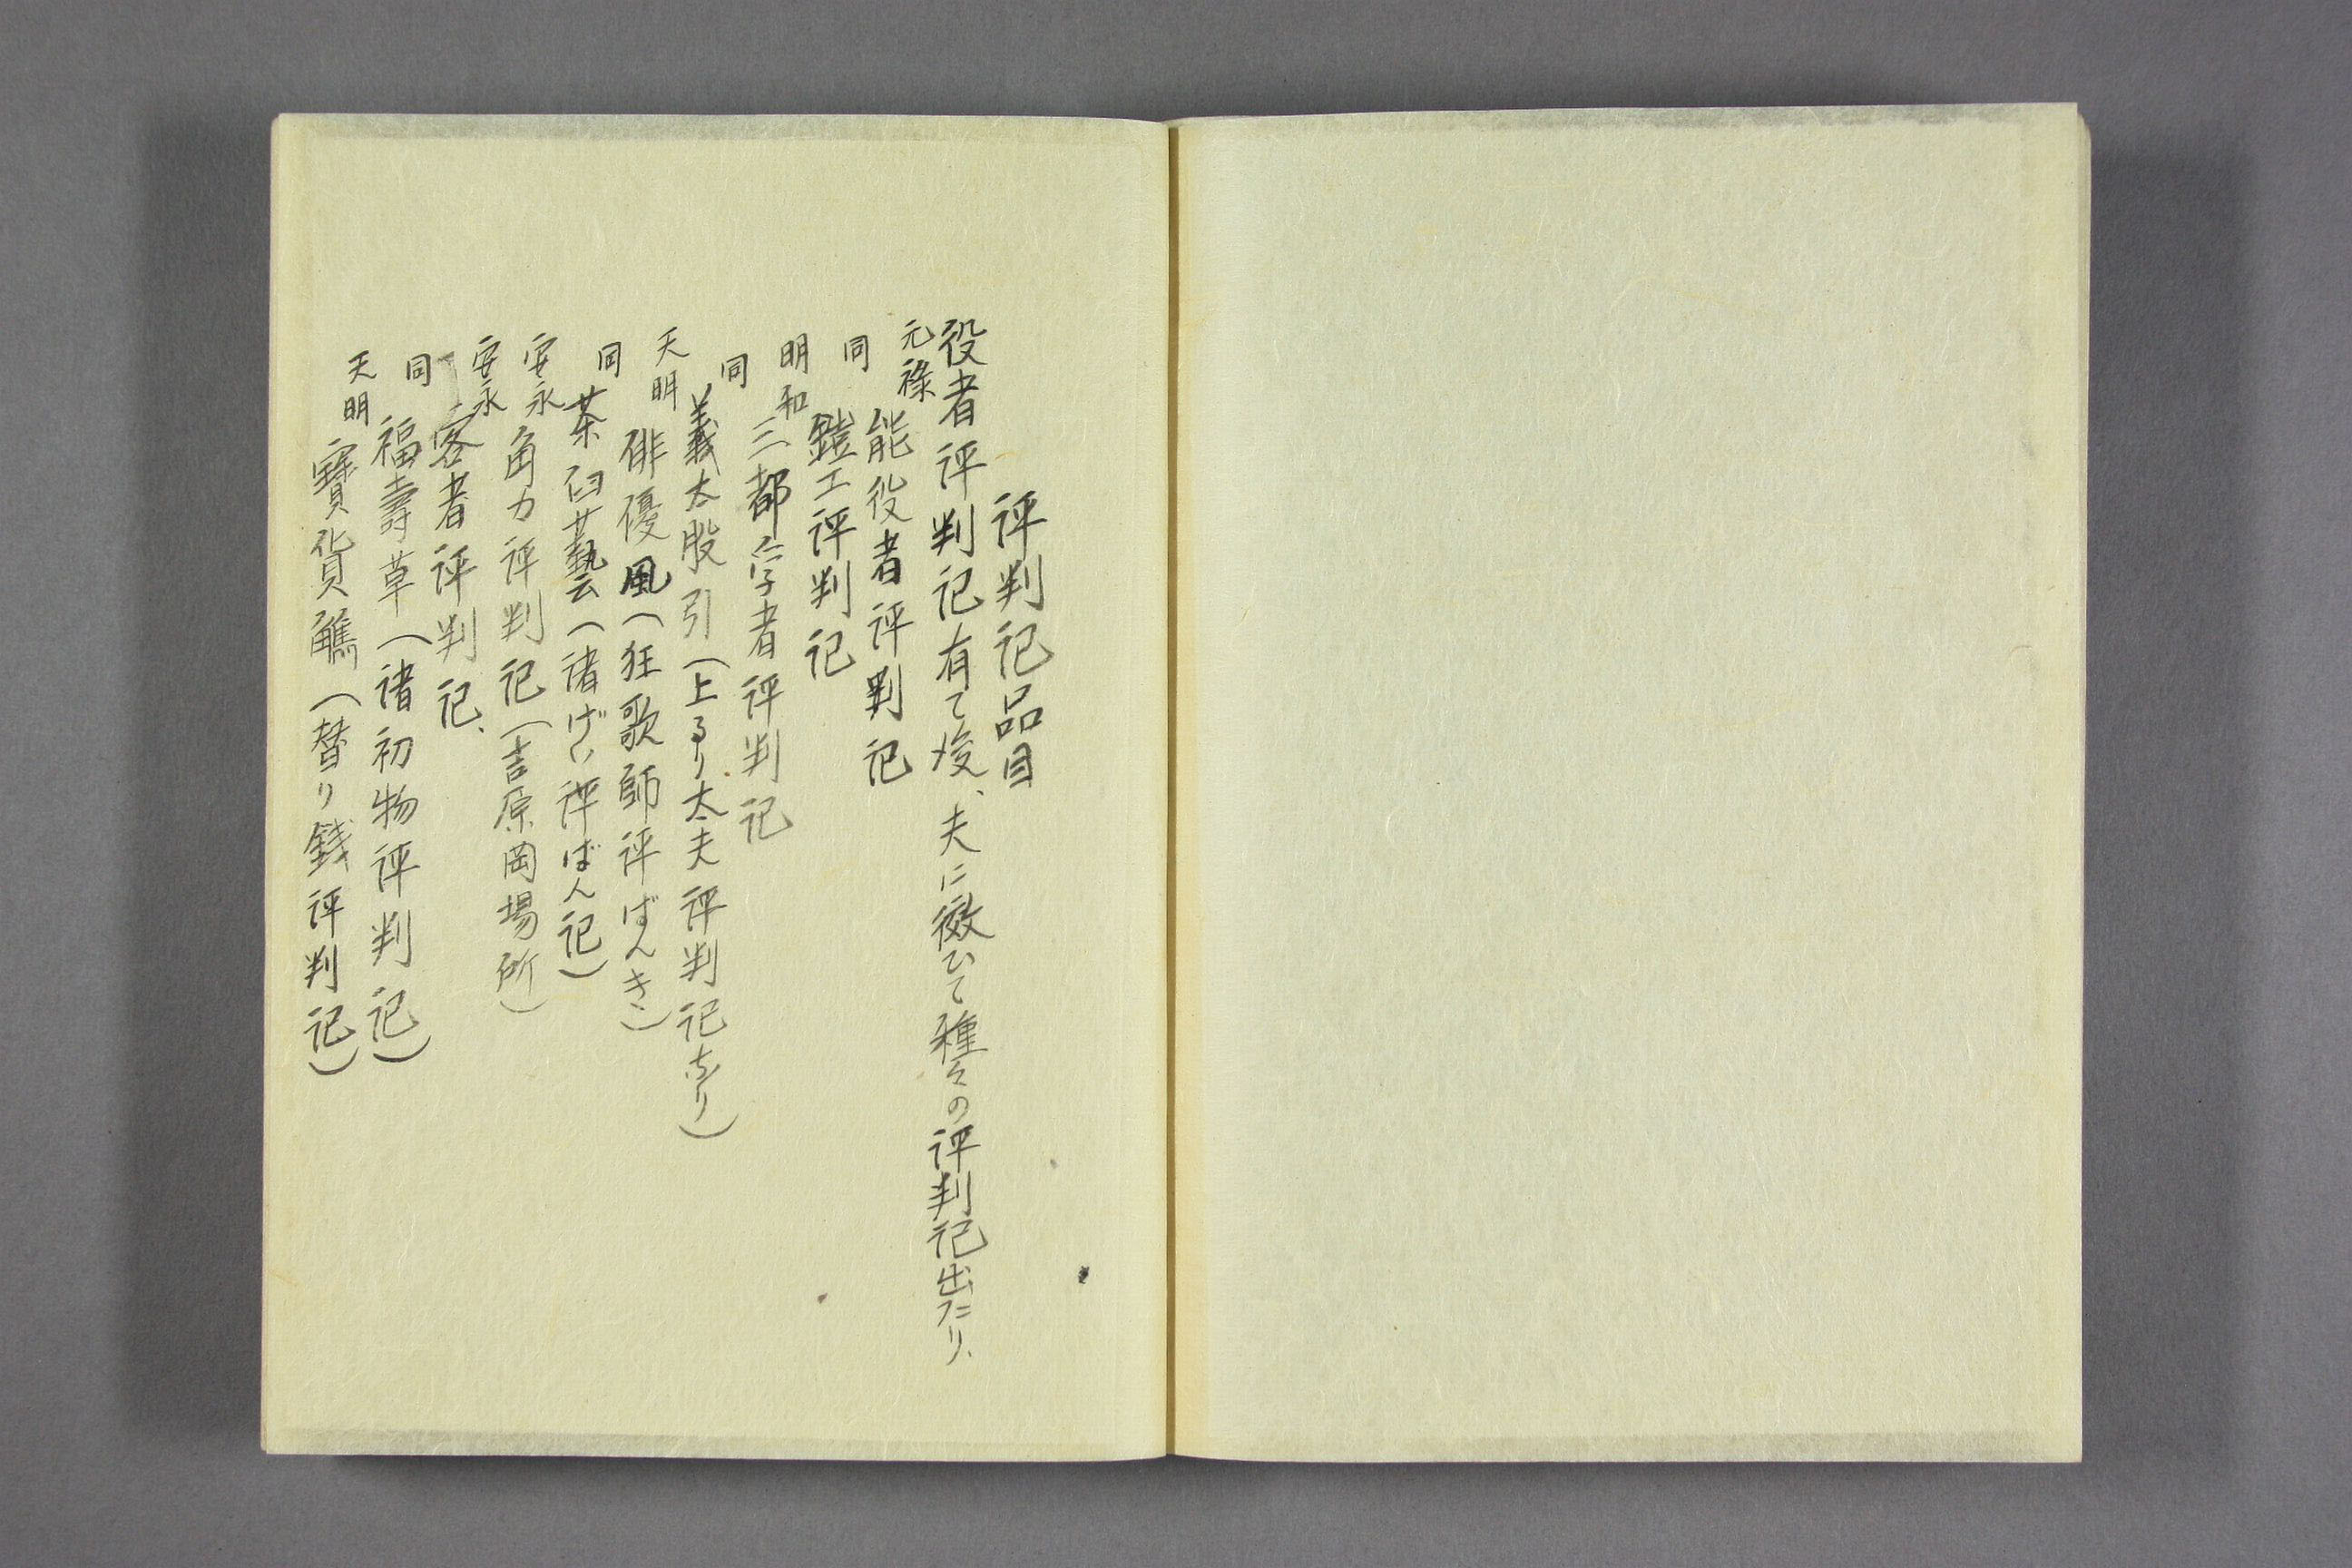 評判記品目
役者評判記有て後、夫に倣ひて種々の評判記出たり、
元禄 能役者評判記
同 鎧工評判記
明和 三都学者評判記
同 義太股引(上るり太夫評判記なり)
天明 俳優風(狂歌師評ばんき)
同 茶臼藝(諸げい評ばん記)
安永 角力評判記(吉原岡場所)
安永 客者評判記、
同 福壽草(諸初物評判記)
天明 寶貨(替り銭評判記)